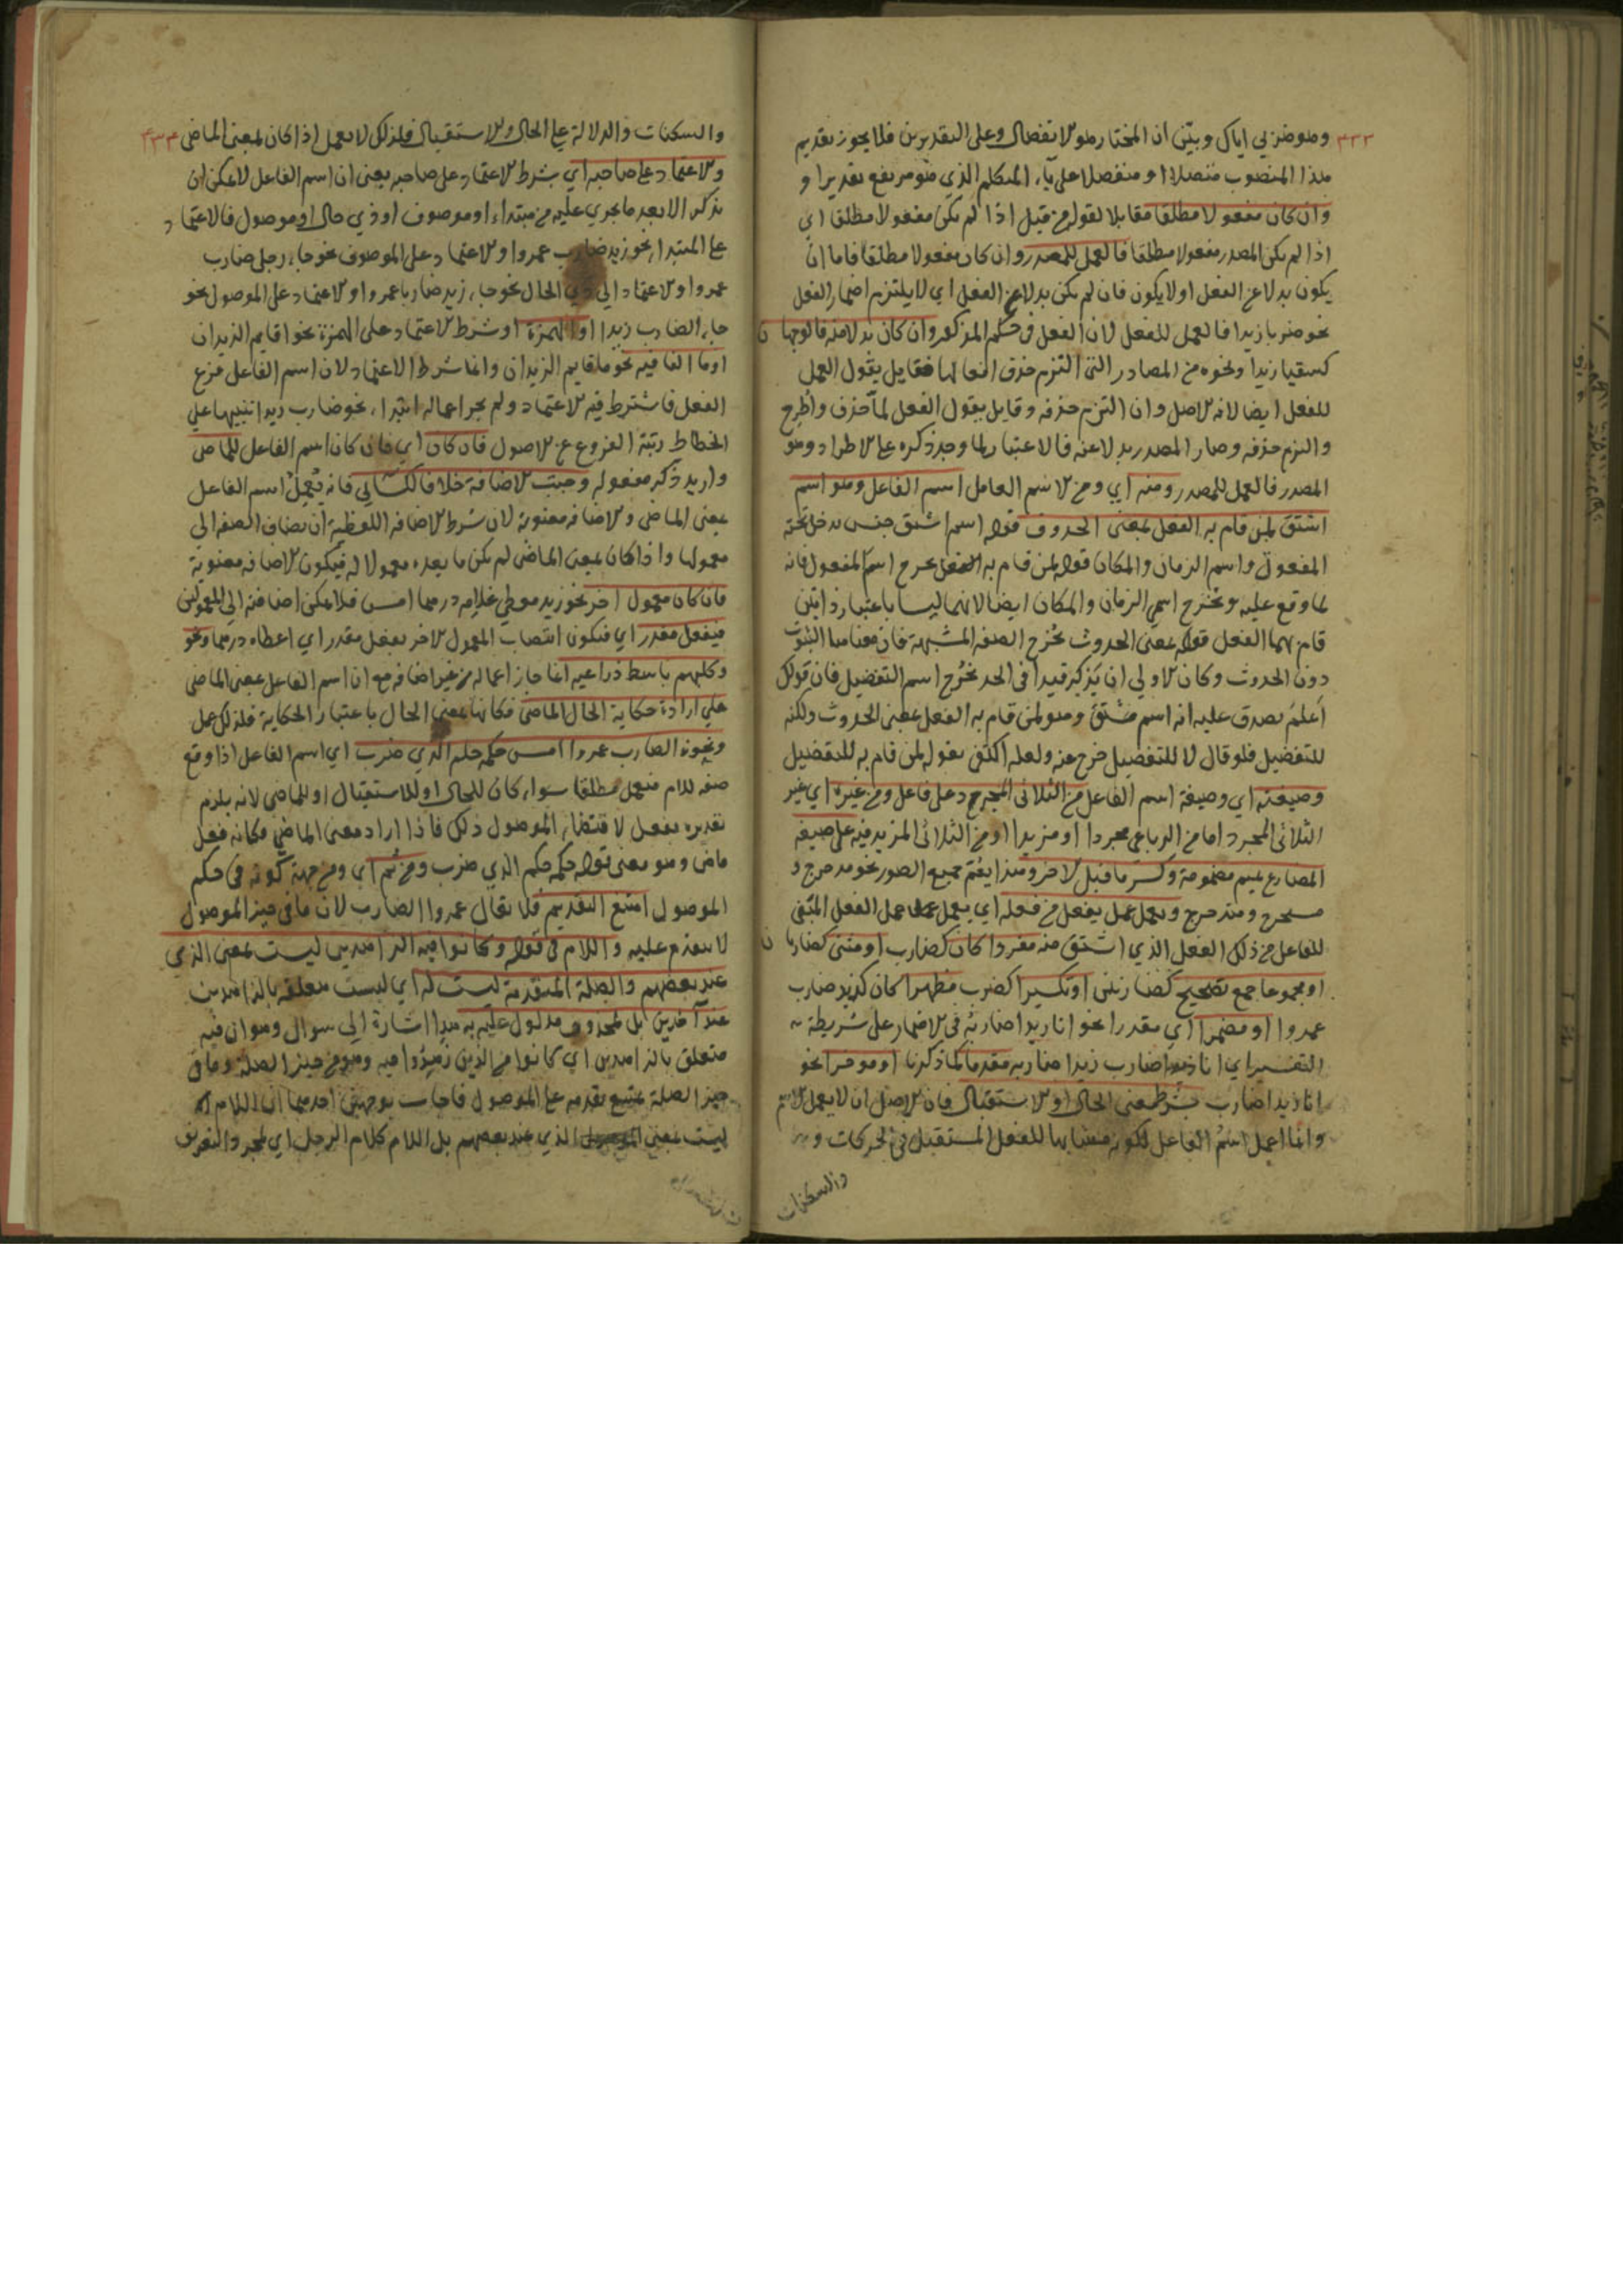 ٣٣٣
وهو ضربي اياك وبيّن ان المختار هو الانفصال وعلى التقديرين فلا يجوز تقديم
هذا المنصوب متصلا او منفصلا على ياء المتكلم الذي هو مرفع تقديرا و
وان كان مفعولا مطلقا مقابلا لقوله من قبل اذا لم يكن مفعولا مطلقا اي
اذا لم يكن المصدر مفعولا مطلقا فالعمل للمصدر وان كان مفعولا مطلقا فاما ان
يكون بدلا عن الفعل او لا يكون فان لم يكن بدلا عن الفعل اي لا يلتزم اضمار الفعل
نحو ضربا زيدا فالعمل للفعل لان الفعل في حكم المذكور وان كان بدلا منه فالوجها ن
كسقيا زيدا ونحوه من المصادر التي التزم حذف افعالها فقايل يقول العمل
للفعل ايضا لانه الاصل وان التزم حذفه وقايل يقول الفعل لما حذف واطرح
والتزم حذفه وصار المصدر بدلا عنه فالاعتبار لما وجد ذكره على الاطراد وهو
المصدر فالعمل للمصدر ومنه اي ومن الاسم العامل اسم الفاعل وهو اسم
اشتق لمن قام به الفعل بمعنى الحدوث قوله اسم اشتق جنس يدخل تحته
المفعول واسم الزمان والمكان قوله لمن قام به الفعل يخرج اسم المفعول فانه
لما وقع عليه ويخرج اسمي الزمان والمكان ايضا لانهما ليسا باعتبار ذاتين
قام بهما الفعل قوله بمعنى الحدوث يخرج الصفة المشبهة فان معناها الثبوت
دون الحدوث وكان الاولي ان يذكر قيدا في الحد يخرج اسم التفضيل فان قولك
اعلم يصدق عليه انه اسم مشتق وهو لمن قام به الفعل بمعنى الحدوث ولكنه
للتفضيل فلو قال لا للتفضيل خرج عنه ولعله اكتفى بقوله لمن قام به للتفضيل
وصيغته اي وصيغة اسم الفاعل من الثلاثي المجرد على فاعل ومن غيره اي غير
الثلاثي المجرد اما من الرباعي مجردا او مزيدا او من الثلاثي المزيد فيه على صيغة
المضارع بميم مضمومة وكسر ما قبل الاخر وهذا يعم جميع الصور نحو مدحرج و
مستخرج ومتدحرج ويعمل عمل يفعل من فعله اي يعمل عمل الفعل المبني
للفاعل من ذلك الفعل الذي اشتق منه مفردا كان كضارب او مثنى كضاربا ن
او مجموعا جمع تصحيح كضاربين او تكسير كضرب مظهرا كان كزيد ضارب
عمروا او مضمرا اي مقدرا نحو انا زيدا ضاربه في الاضمار على شريطة
التفسير اي انا ضارب زيدا ضاربه مقدما كما ذكرنا او موخرا نحو
انا زيدا ضارب بشرط معنى الحال او الاستقبال فان الاصل ان لا يعمل الاسم
وانما اعمل اسم الفاعل لكونه مشابها للفعل المستقبل في الحركات و
والسكنات
٣٣٤
والسكنات والدلالة على الحال والاستقبال فلذلك لا يعمل اذا كان بمعنى الماضي
والاعتماد على صاحبه اي بشرط الاعتماد على صاحبه يعني ان اسم الفاعل لا يمكن ان
يذكر الا بعد ما يجري عليه من مبتداء او موصوف او ذي حال او موصول فالاعتماد
على المبتدا نحو زيد ضارب عمروا والاعتماد على الموصوف نحو جاء رجل ضارب
عمروا والاعتماد الي ذي الحال نحو جاء زيد ضاربا عمروا والاعتماد على الموصول نحو
جاء الضارب زيدا او الهمزة او شرط الاعتماد على الهمزة نحو اقايم الزيدان
او ما النافيه نحو ما قايم الزيدان وانما شرط الاعتماد لان اسم الفاعل فرع
الفعل فاشترط فيه الاعتماد ولم يجز اعماله ابتداء نحو ضارب زيدا تنبيها علي
انحطاط رتبة الفروع عن الاصول فان كان اي فان كان اسم الفاعل للماضي
واريد ذكر مفعوله وجبت الاضافة خلافا للكسائي فانه يعمل اسم الفاعل
بمعنى الماضي والاضافة معنوية لان شرط الاضافة اللفظية ان يضاف الصفة الي
معمولها واذا كان بمعنى الماضي لم يكن ما بعده معمولا له فيكون الاضافة معنوية
فان كان معمول اخر نحو زيد معطي غلامه درهما امس فلا يمكن اضافته الى المعمولين
فبفعل مقدر اي فيكون انتصاب المعمول الاخر بفعل مقدر اي اعطاه درهما ونحو
وكلبهم باسط ذراعيه انما جاز اعماله من غير اضافة مع ان اسم الفاعل بمعنى الماضي
على ارادة حكاية الحال الماضي فكانها بمعنى الحال باعتبار الحكاية فلذلك عمل
ونحو الضارب عمروا امس حكمه حكم الذي ضرب اي اسم الفاعل اذا وقع
صفة للام فيعمل مطلقا سواء كان للحال او للاستقبال او للماضي لانه يلزم
تقديره بفعل لاقتضاء الموصول ذلك فاذا اراد معنى الماضي فكانه فعل
ماض وهو معنى قوله حكمه حكم الذي ضرب ومن ثم اي ومن جهة كونه في حكم
الموصول امتنع التقديم فلا يقال عمروا الضارب لان ما في حيز الموصول
لا يتقدم عليه واللام في قوله وكانوا فيه الزاهدين ليست بمعنى الذي
عند بعضهم والصلة المتقدمة ليست له اي ليست متعلقة بالزاهدين
عند آخرين بل لمحذوف مدلول عليه به هذا اشارة الي سوال وهو ان فيه
متعلق بالزاهدين اي كانوا من الذين زهدوا فيه وهو من حيز الصلة وما في
حيز الصلة يمتنع تقديمه على الموصول فاجاب بوجهين احدهما ان اللام
ليست بمعنى الذي عند بعضهم بل اللام كلام الرجل اي لمجرد التعريف